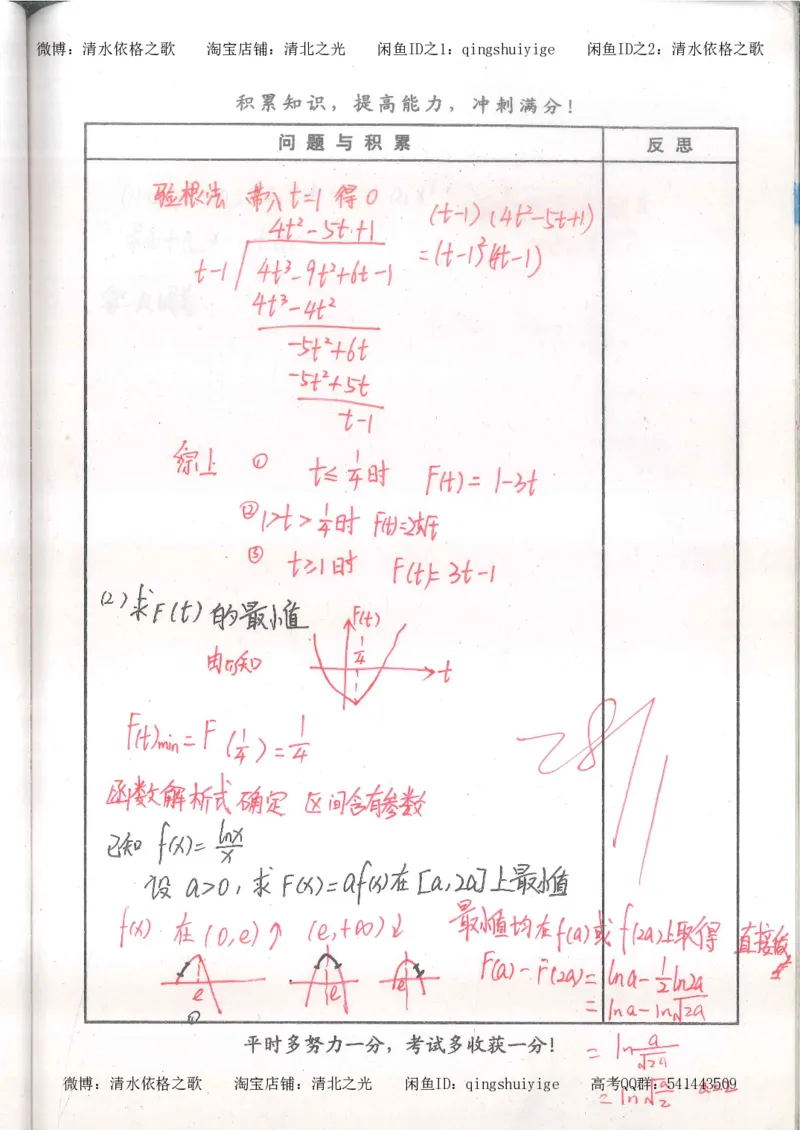 微博：清水依格之歌 淘宝店铺：清北之光 闲鱼ID之1：qingshuiyige 闲鱼ID之2：清水依格之歌
积累知识，提高能力，冲刺满分！
问题与积累 反思
验根法 带入t=1 得0
(t-1)(4t²-5t+1)
=(t-1)²(4t-1)
4t²-5t+1
t-1 / 4t³-9t²+6t-1
4t³-4t²
-5t²+6t
-5t²+5t
t-1
综上 ① t≤1/4时 F(t)=1-3t
②1>t>1/4时 F(t)=2t√t
③ t≥1时 F(t)=3t-1
(2)求F(t)的最小值
F(t)
1/4
t
F(t)min=F(1/4)=1/4
函数解析式确定 区间含有参数
已知 f(x)=lnx/x
设 a>0，求F(x)=af(x)在[a,2a]上最小值
f(x) 在(0,e)↑ (e,+∞)↓ 最小值均在f(a)或f(2a)上取得 直接做
F(a)-F(2a)=lna-1/2ln2a
=lna-ln√2a
e e e
①
平时多努力一分，考试多收获一分！
=ln a/√2a
微博：清水依格之歌 淘宝店铺：清北之光 闲鱼ID：qingshuiyige 高考QQ群：541443509
=ln√a/2